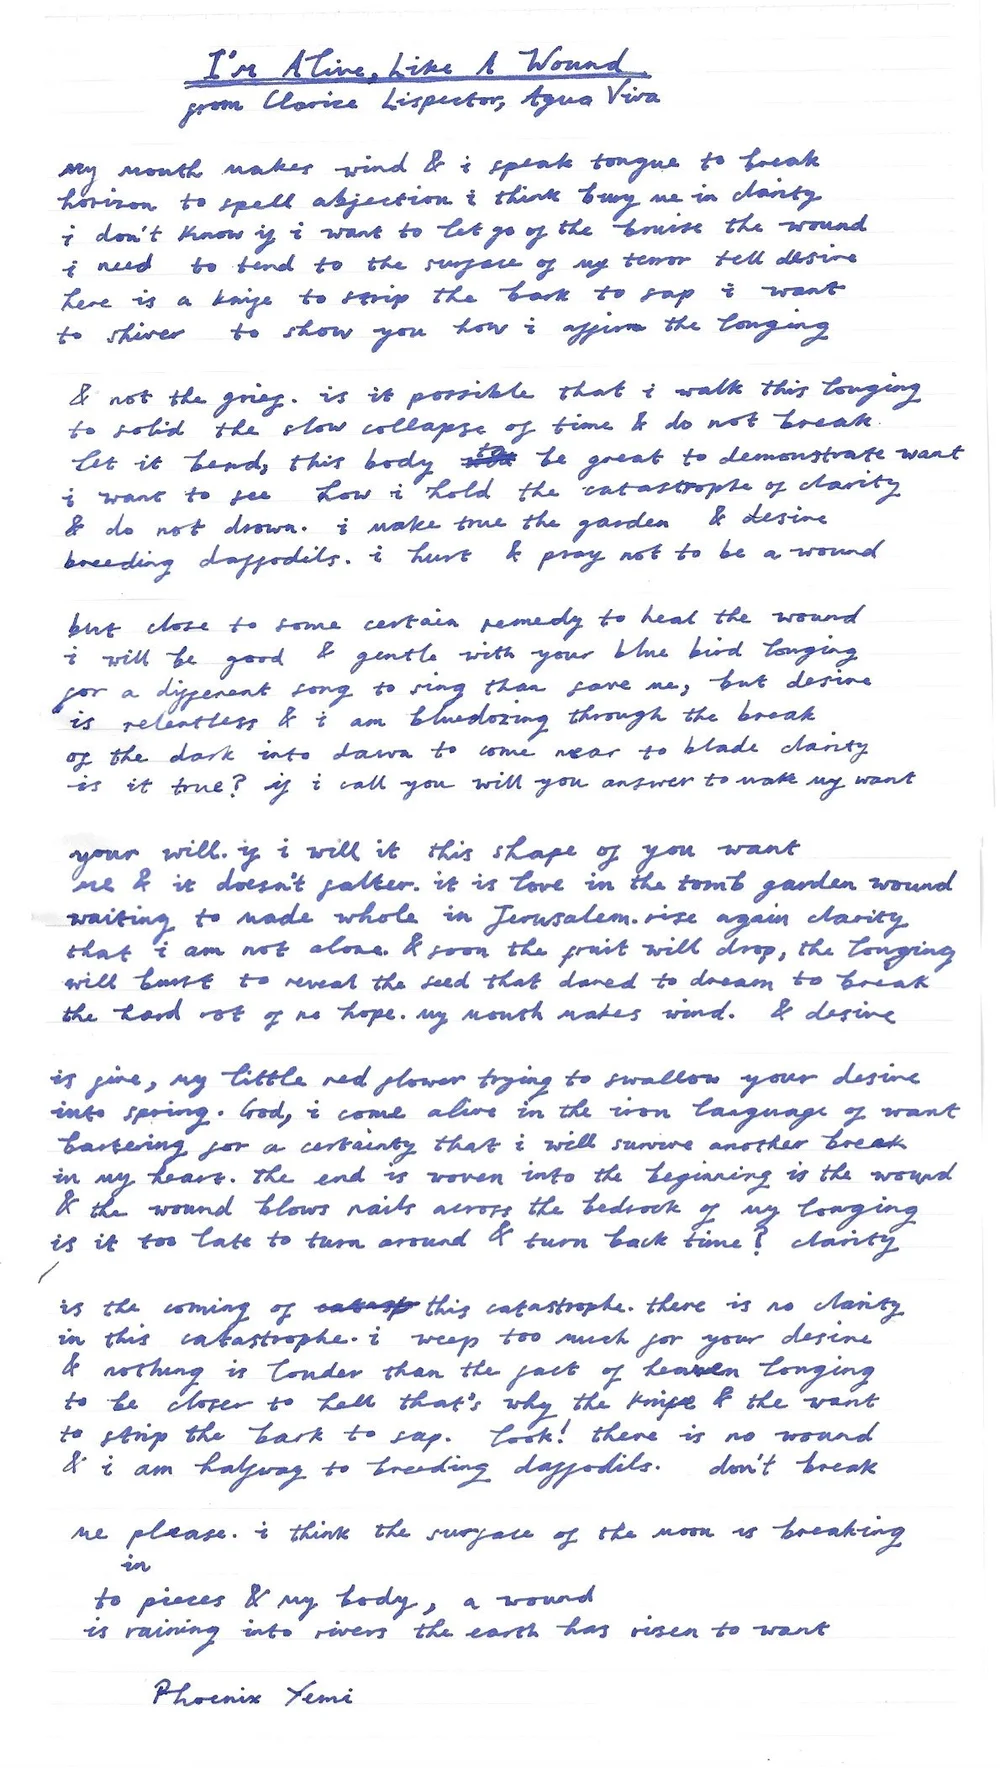 I'm Alive, Like A Wound
from Clarice Lispector, Agua Viva
My mouth makes wind & i speak tongue to break
horizon to spell abjection i think bury me in clarity
i don't know if i want to let go of the bruise the wound
i need to tend to the surface of my terror tell desire
here is a knife to strip the bark to sap i want
to shiver to show you how i affirm the longing
& not the grief. is it possible that i walk this longing
to solid the slow collapse of time & do not break
let it bend, this body to be great to demonstrate want
i want to see how i hold the catastrophe of clarity
& do not drown. i make true the garden & desire
breeding daffodils. i hurt & pray not to be a wound
but close to some certain remedy to heal the wound
i will be good & gentle with your blue bird longing
for a different song to sing than save me, but desire
is relentless & i am bluedozing through the break
of the dark into dawn to come near to blade clarity
is it true? if i call you will you answer to make my want
your will. if i will it this shape of you want
me & it doesn't falter. it is love in the tomb garden wound
waiting to made whole in Jerusalem. rise again clarity
that i am not alone. & soon the fruit will drop, the longing
will burst to reveal the seed that dared to dream to break
the hard rot of no hope. my mouth makes wind. & desire
is fire, my little red flower trying to swallow your desire
into spring. God, i come alive in the iron language of want
bartering for a certainty that i will survive another break
in my heart. the end is woven into the beginning is the wound
& the wound blows nails across the bedrock of my longing
is it too late to turn around & turn back time? clarity
is the coming of this catastrophe. there is no clarity
in this catastrophe. i weep too much for your desire
& nothing is louder than the fact of heaven longing
to be closer to hell that's why the knife & the want
to strip the bark to sap. look! there is no wound
& i am halfway to breeding daffodils. don't break
me please. i think the surface of the moon is breaking
in
to pieces & my body, a wound
is raining into rivers the earth has risen to want
Phoenix Yemi